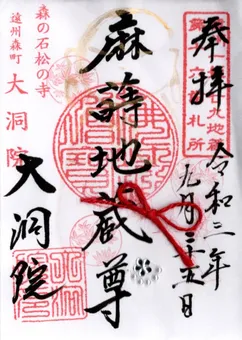 奉拝
令和三年
九月二十五日
麻蒔地蔵尊
森の石松の寺
遠州森町
大洞院
大洞院
札所